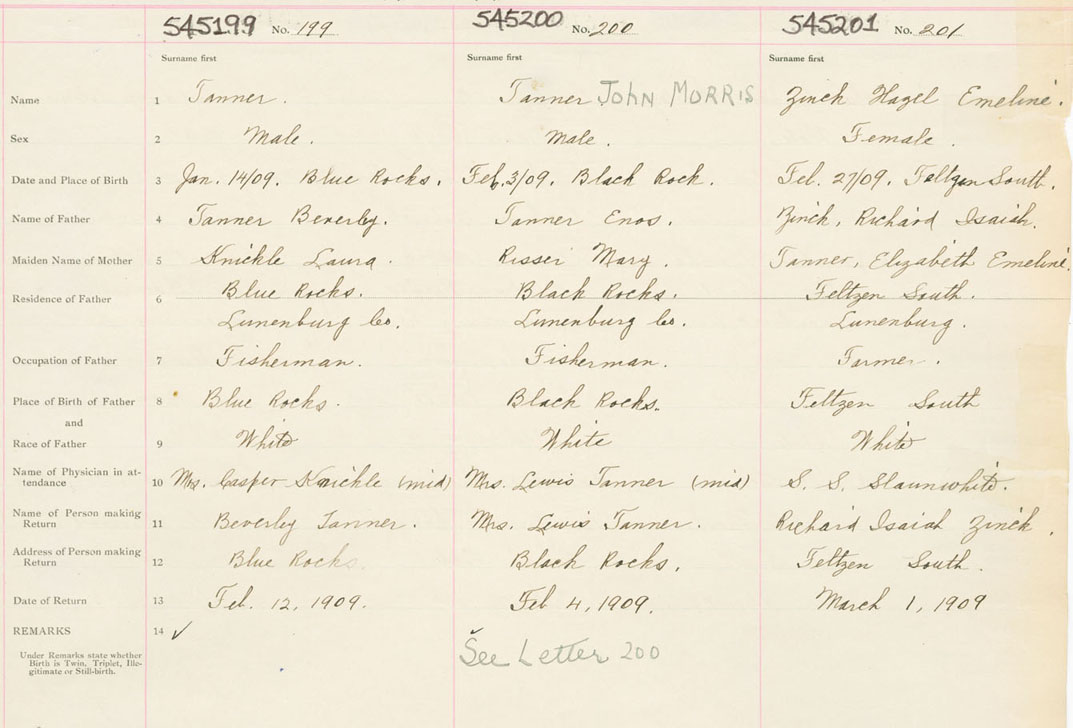 545199 No. 199 545200 No. 200 545201 No. 201
Surname first Surname first Surname first
Name 1 Tanner. Tanner JOHN MORRIS Zinck Hazel Emeline.
Sex 2 Male. Male. Female.
Date and Place of Birth 3 Jan. 14/09. Blue Rocks. Feb. 3/09. Black Rock. Feb. 27/09. Feltzen South.
Name of Father 4 Tanner Beverley. Tanner Enos. Zinck, Richard Isaiah.
Maiden Name of Mother 5 Knickle Laura. Risser Mary. Tanner, Elizabeth Emeline.
Residence of Father 6 Blue Rocks. Black Rocks. Feltzen South.
Lunenburg Co. Lunenburg Co. Lunenburg.
Occupation of Father 7 Fisherman. Fisherman. Farmer.
Place of Birth of Father 8 Blue Rocks. Black Rocks. Feltzen South
and
Race of Father 9 White White White
Name of Physician in at-
tendance 10 Mrs. Casper Knickle (mid) Mrs. Lewis Tanner (mid) S. S. Slaunwhite.
Name of Person making
Return 11 Beverley Tanner. Mrs. Lewis Tanner. Richard Isaiah Zinck.
Address of Person making
Return 12 Blue Rocks. Black Rocks. Feltzen South.
Date of Return 13 Feb. 12, 1909. Feb 4, 1909. March 1, 1909
REMARKS 14 ✓
Under Remarks state whether
Birth is Twin, Triplet, Ille-
gitimate or Still-birth.
See Letter 200